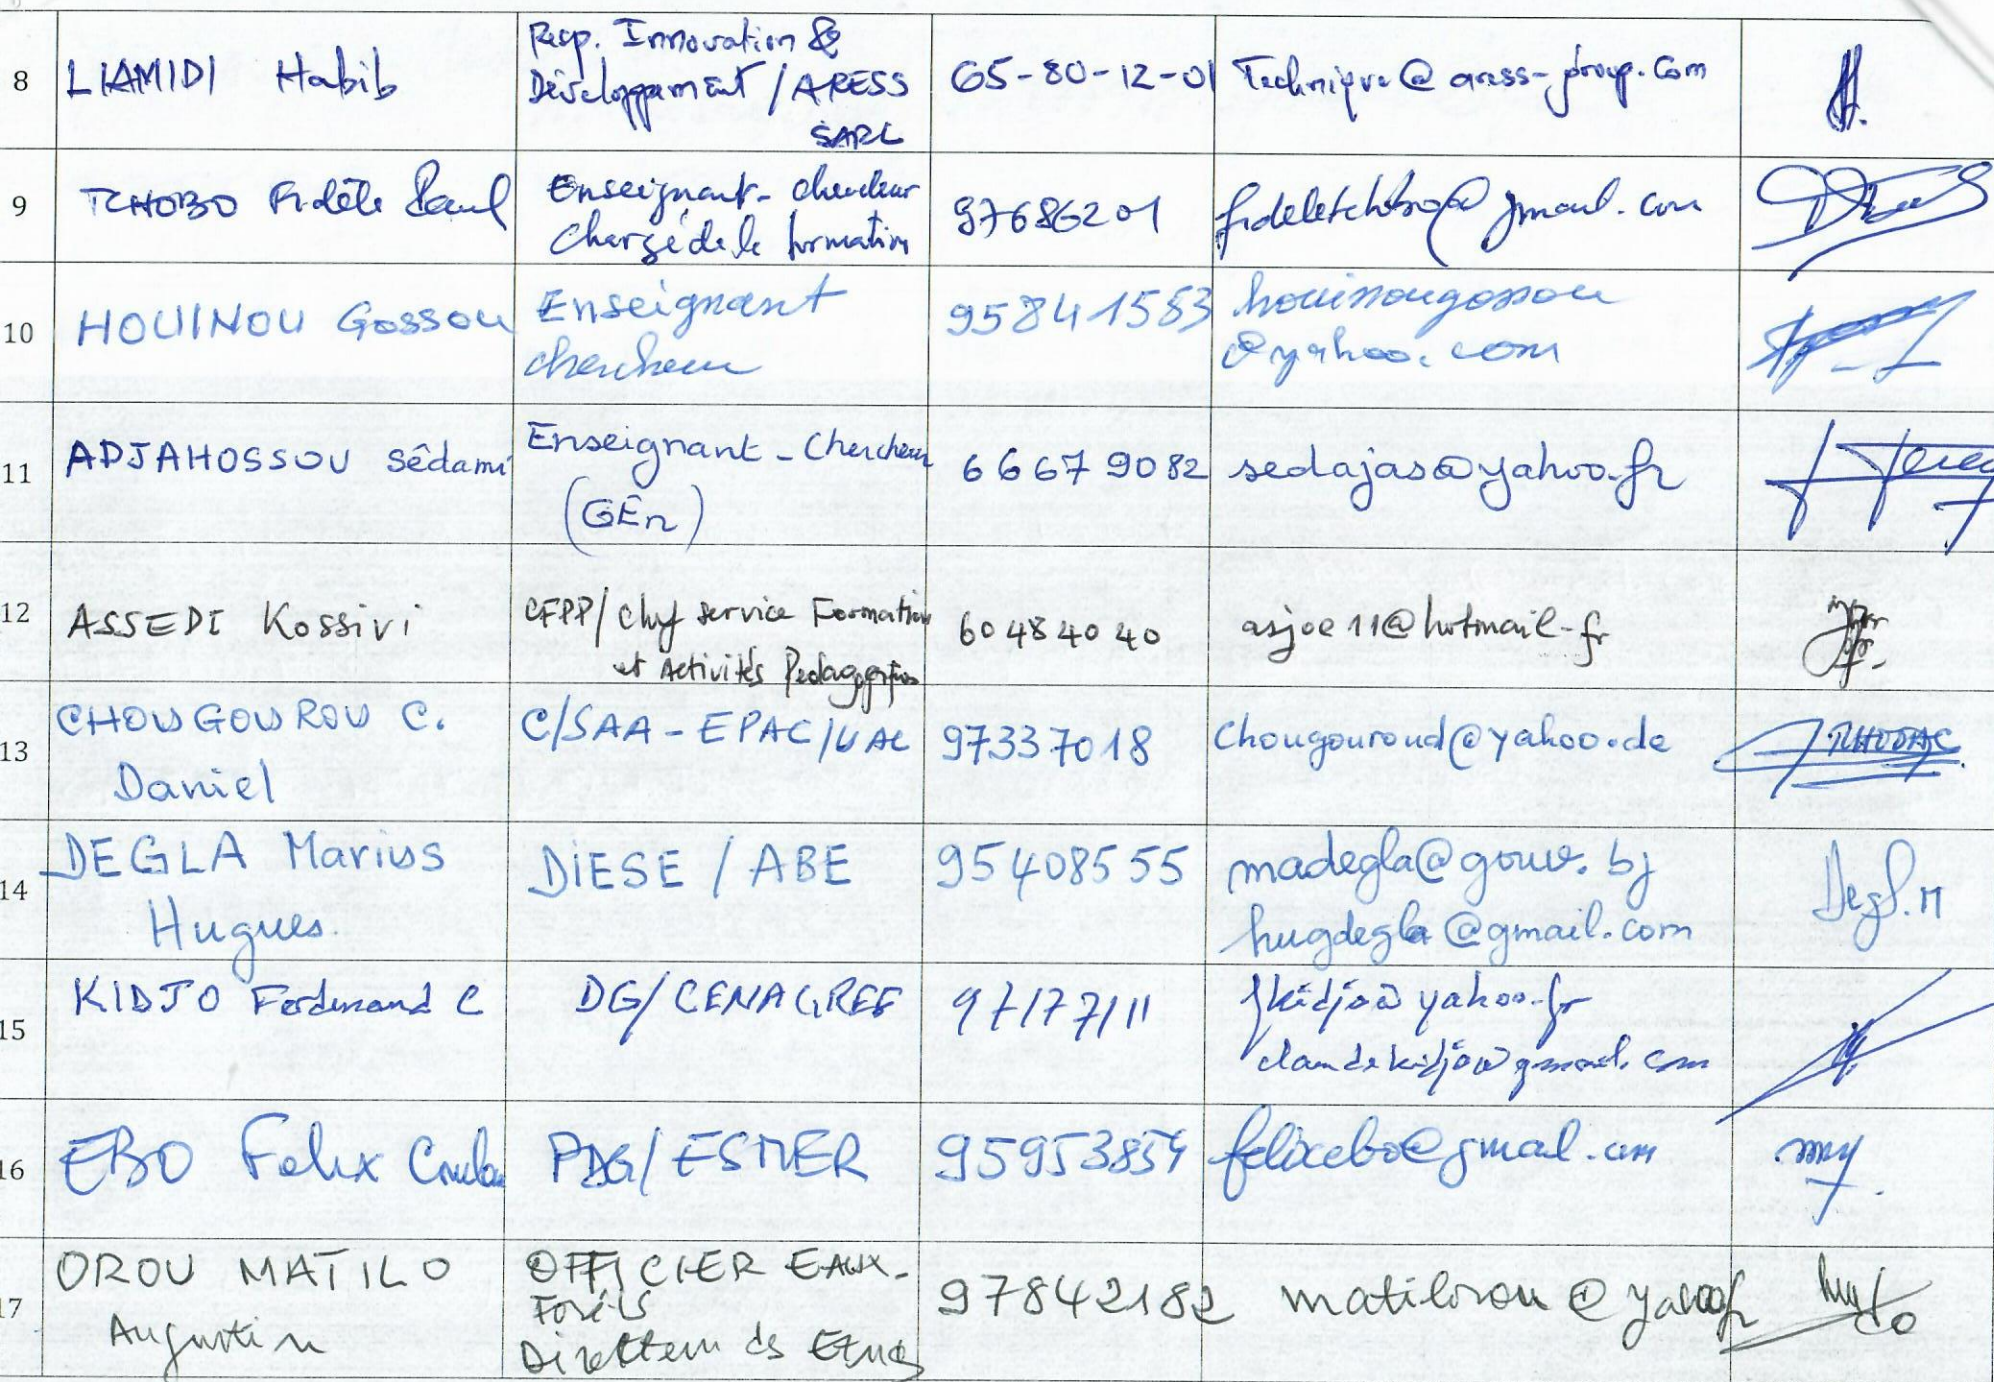 8 LIAMIDI Habib
Resp. Innovation &
Développement / ARESS
SARL
65-80-12-01
Technique@aress-group.com
9 TCHOBO Fidèle Paul
Enseignant-chercheur
Chargé de la formation
97686201
fideletchobo@gmail.com
10 HOUINOU Gossou
Enseignant
chercheur
95841583
houinougossou
@yahoo.com
11 ADJAHOSSOU Sêdami
Enseignant-Chercheur
(GEn)
66679082
sedajas@yahoo.fr
12 ASSEDI Kossivi
CFPP/Chef service Formation
et Activités Pédagogiques
60484040
asjoe11@hotmail.fr
13 CHOUGOUROU C.
Daniel
C/SAA-EPAC/UAC
97337018
chougouroud@yahoo.de
14 DEGLA Marius
Hugues
DIESE / ABE
95408555
madegla@gouv.bj
hugdegla@gmail.com
Degl.M
15 KIDJO Ferdinand C
DG/CENAGREF
97177111
fkidjo@yahoo.fr
claudekidjo@gmail.com
16 EBO Felix
PDG/ESMER
95953854
felixebo@gmail.com
17 OROU MATILO
Augustin
OFFICIER EAUX-
Forêts
Directeur des
97842182
matilorou@yahoo.fr